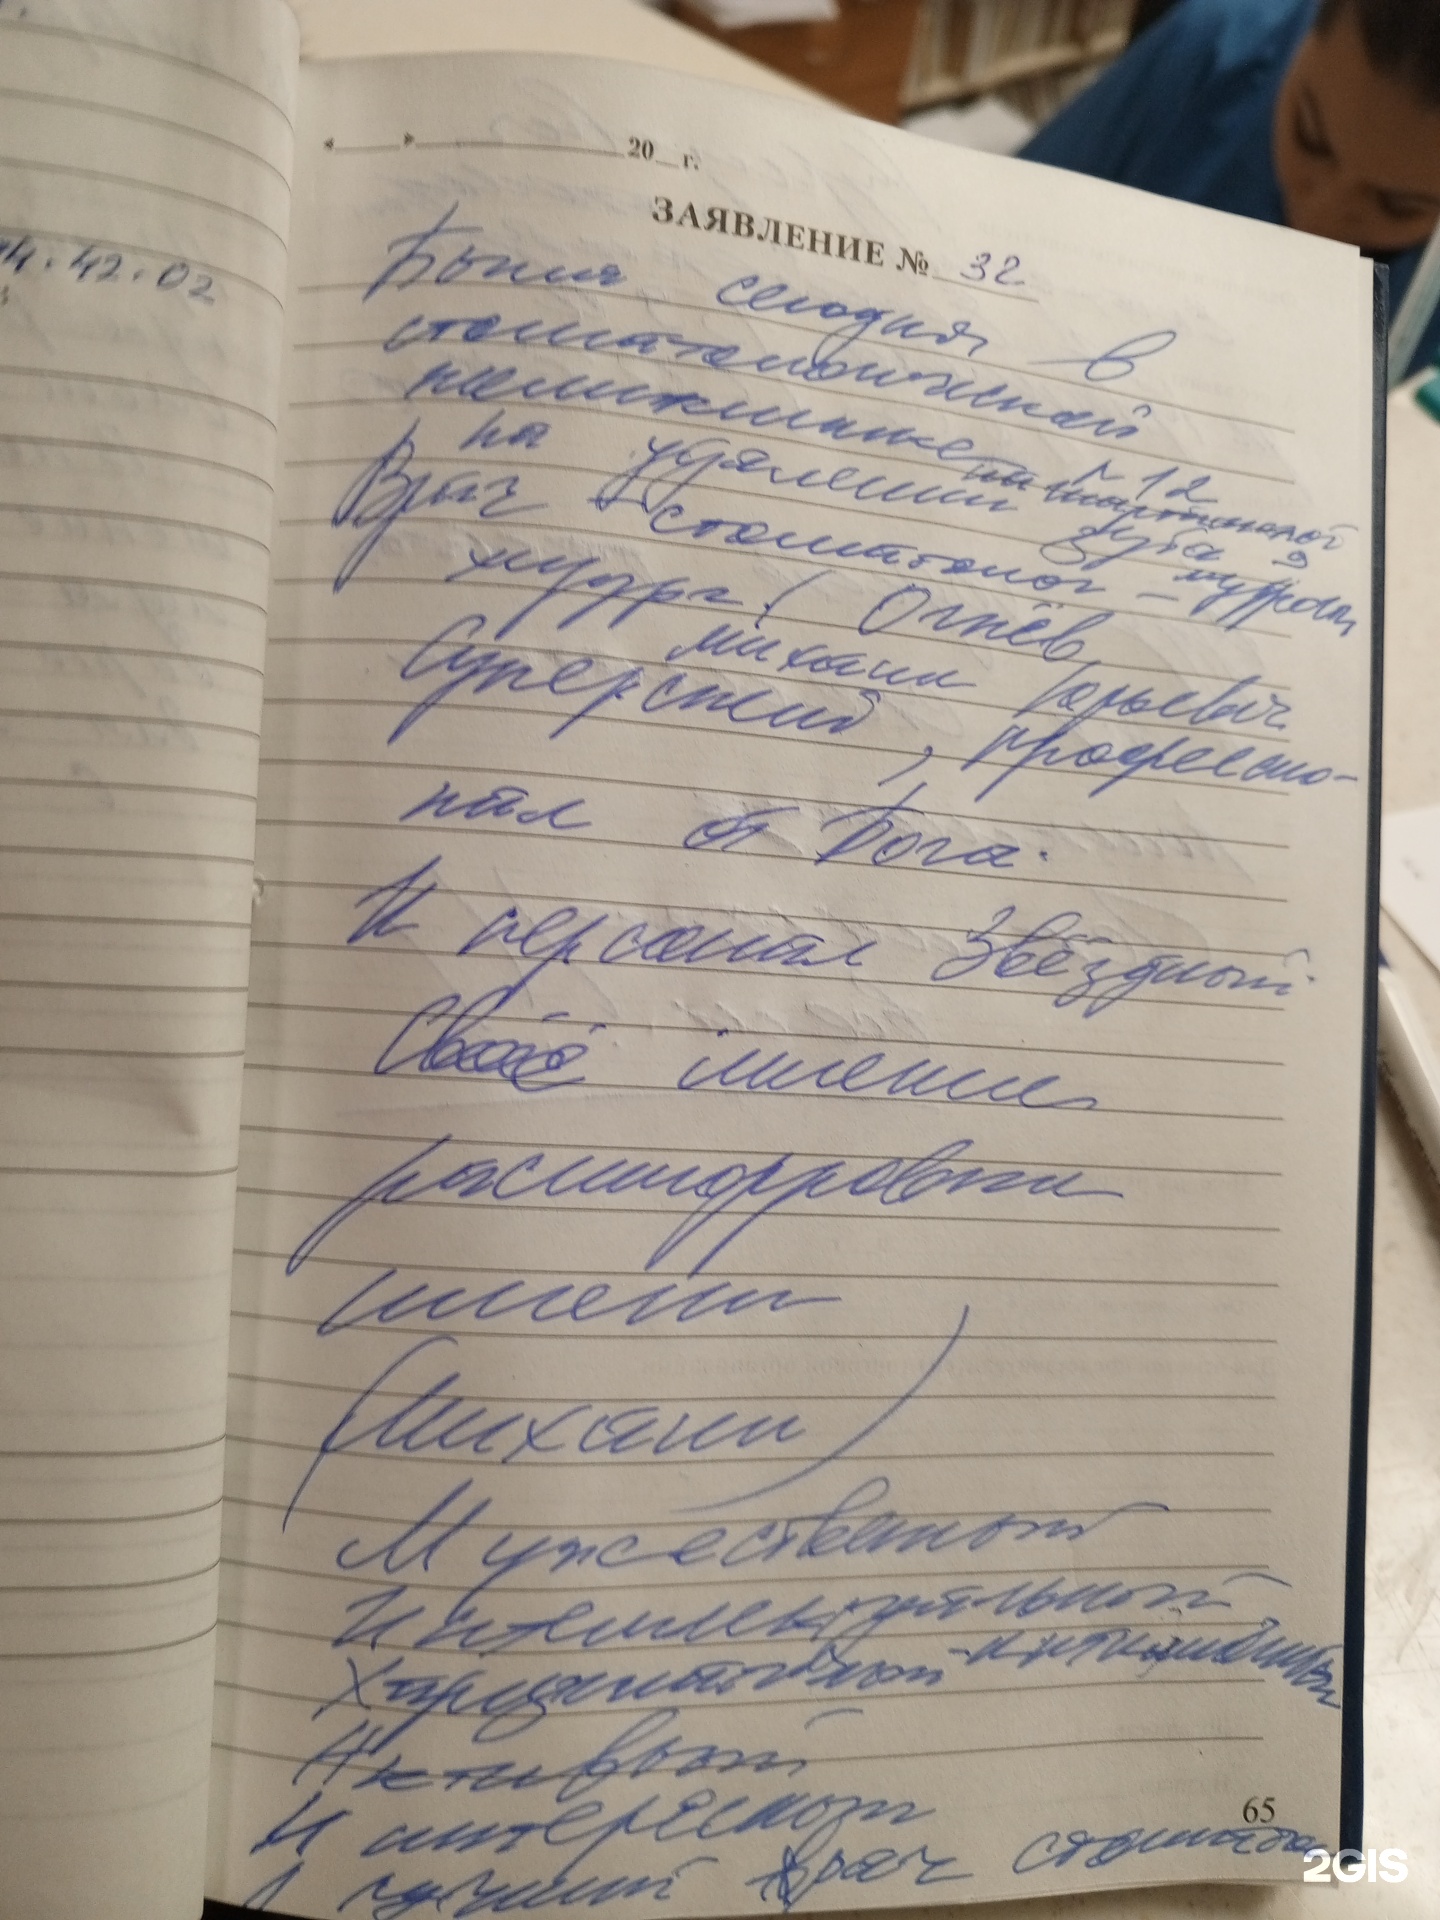 4.42.02
« » 20 г.
ЗАЯВЛЕНИЕ № 32
Была сегодня в
стоматологической
поликлинике № 12
на удалении зуба мудрости
Врач стоматолог –
хирург! Огнёв
Михаил Юрьевич
Суперский, професио-
нал от Бога.
И персонал Звёздный
Своё мнение
расшифровки
имени
(Михаил)
Мужественный
Интеллектуальный
Харизматичный
Активный
Интересный
Лучший врач стоматолог
65
2GIS